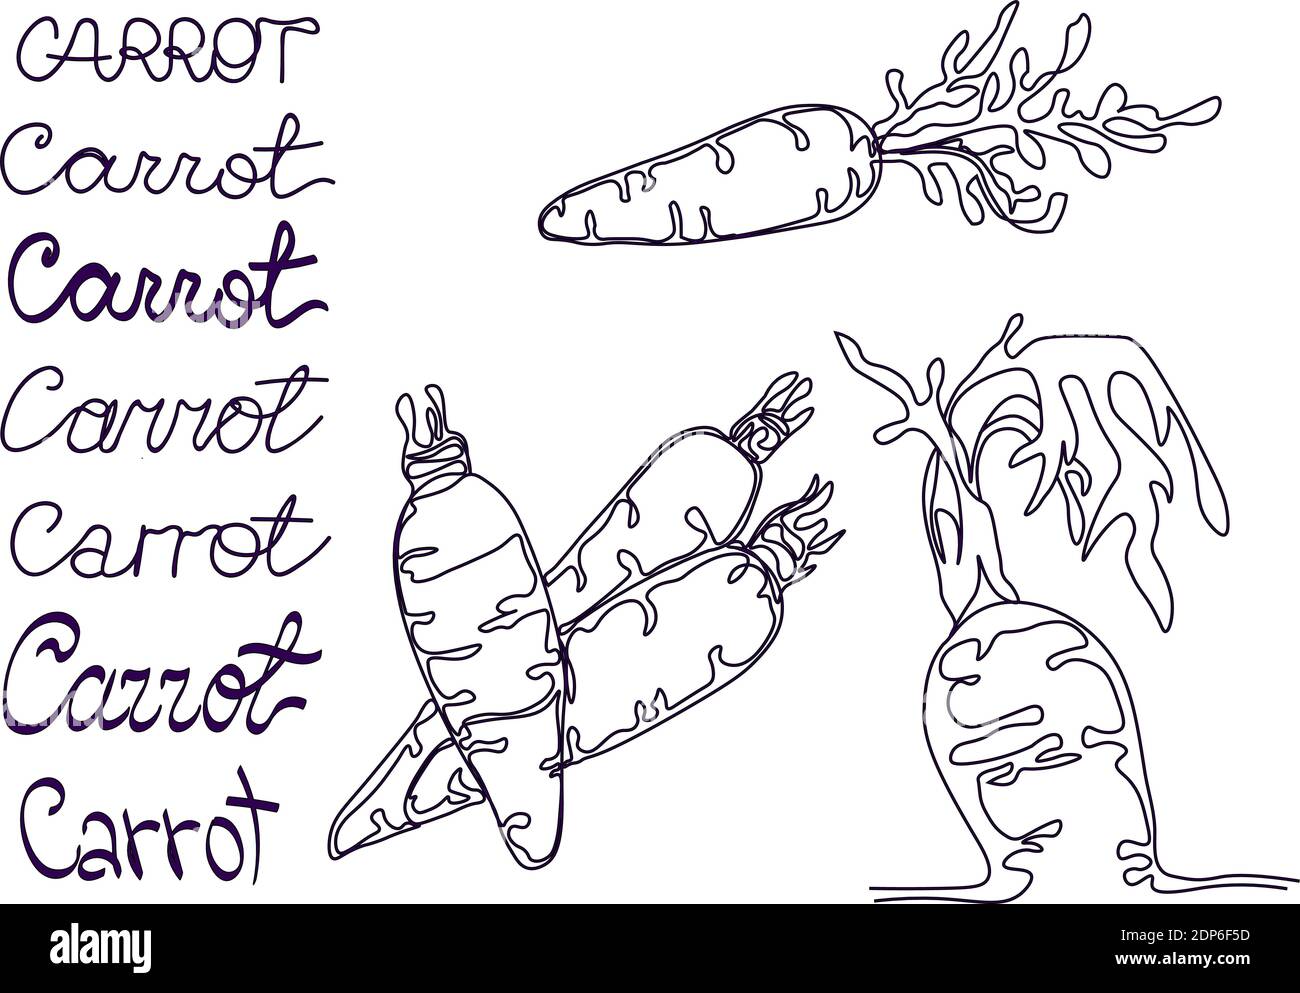 CARROT
Carrot
Carrot
Carrot
Carrot
Carrot
Carrot
alamy
Image ID: 2DP6F5D
www.alamy.com